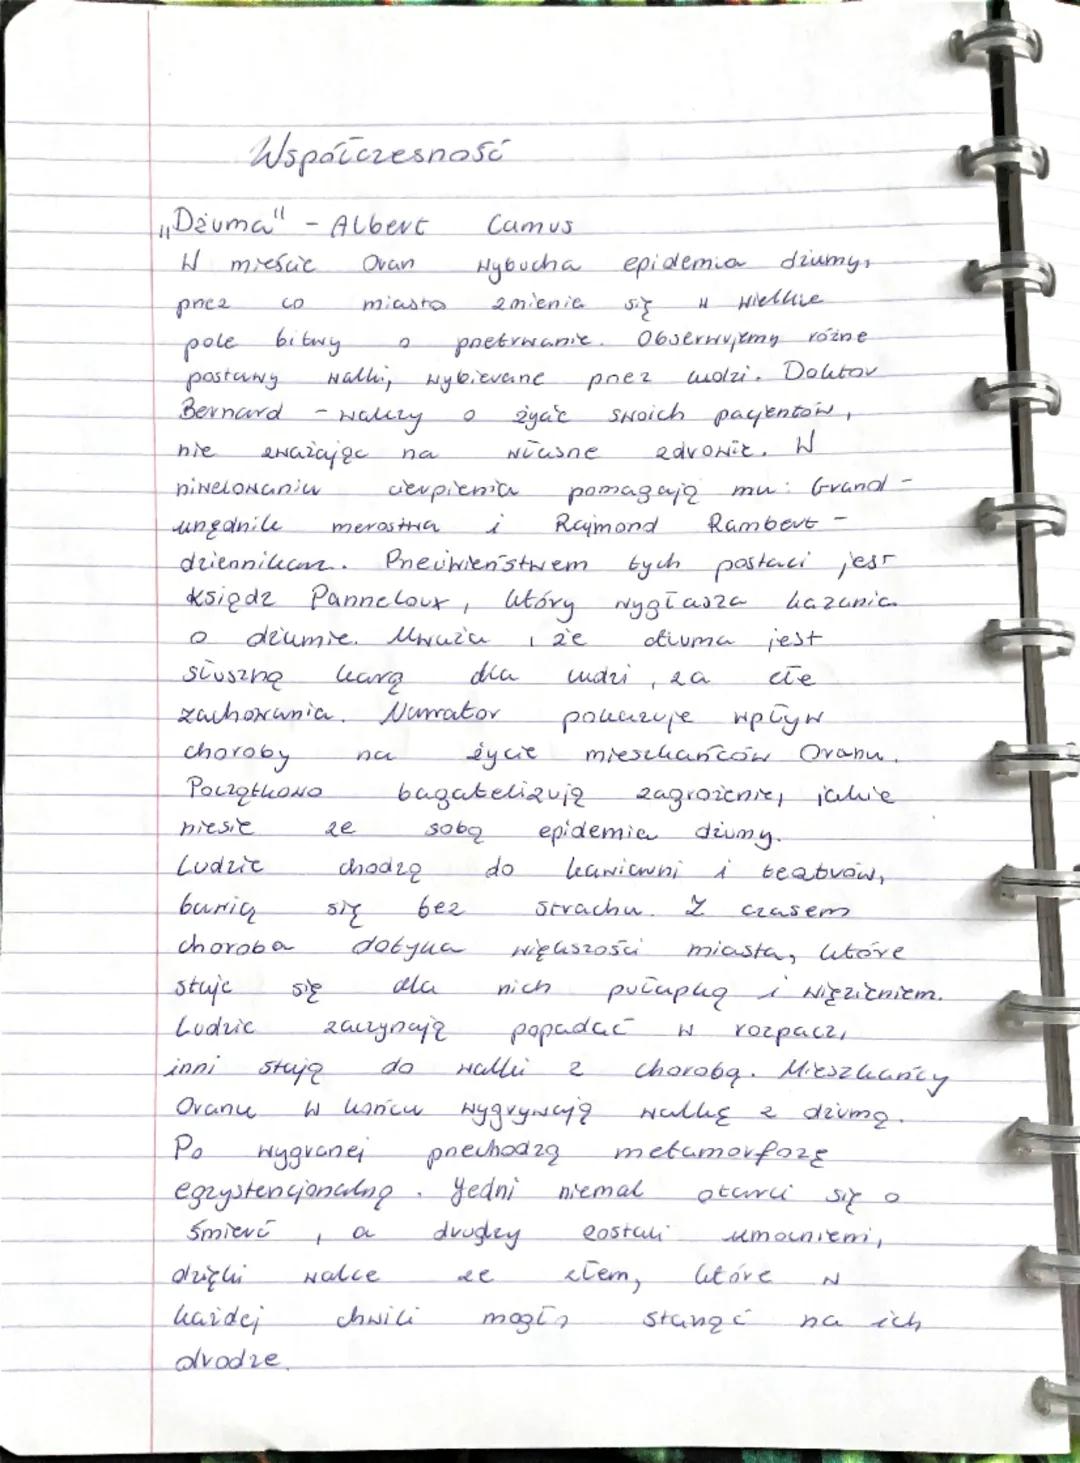 Współczesność
„Dżuma" - Albert Camus
W mieście Oran wybucha epidemia dżumy,
przez co miasto zmienia się w wielkie
pole bitwy o przetrwanie. Obserwujemy różne
postawy walki, wybierane przez ludzi. Doktor
Bernard - walczy o życie swoich pacjentów,
nie zważając na własne zdrowie. W
niwelowaniu cierpienia pomagają mu: Grand -
urzędnik merostwa i Raymond Rambert -
dziennikarz. Przeciwieństwem tych postaci jest
Ksiądz Panneloux, który wygłasza kazania
o dżumie. Uważa, że dżuma jest
słuszną karą dla ludzi, za złe
zachowania. Narrator pokazuje wpływ
choroby na życie mieszkańców Oranu.
Początkowo bagatelizują zagrożenie, jakie
niesie ze sobą epidemia dżumy.
Ludzie chodzą do kawiarni i teatrów,
bawią się bez strachu. Z czasem
choroba dotyka większości miasta, które
staje się dla nich pułapką i więzieniem.
Ludzie zaczynają popadać w rozpacz,
inni stają do walki z chorobą. Mieszkańcy
Oranu w końcu wygrywają walkę z dżumą.
Po wygranej przechodzą metamorfozę
egzystencjonalną. Jedni niemal otarli się o
śmierć, a drudzy zostali umocnieni,
dzięki walce ze złem, które w
każdej chwili mogło stanąć na ich
drodze.